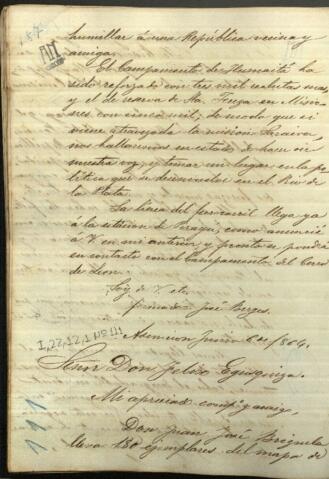 humillar á una República vecina y
amiga.
El Campamento de Humaitá ha
sido reforzado con tres mil reclutas mas,
y el de reserva de Sta. Teresa en Misio
nes con cinco mil; de modo que si
viene atravezada la mision Saraiva
nos hallaremos en estado de hacer oir
nuestra voz, y tomar un lugar en la po
litica que se desenvuelve en el Rio de
la Plata.
La linea del ferrocarril llega ya
á la estacion de Pirayú, como anuncié
á V en mi anterior, y pronto se pondrá
en contacto con el Campamento del Cerro
de Leon.
Soy de V. etc
firmado José Berges.
I,22,12,1 Nº 111
Asuncion Junio 6 de 1864.
Señor Don Felix Eguzquiza.
Mi apreciado comp.e y amigo,
Don Juan José Brizuela
lleva 150 ejemplares del mapa de
111